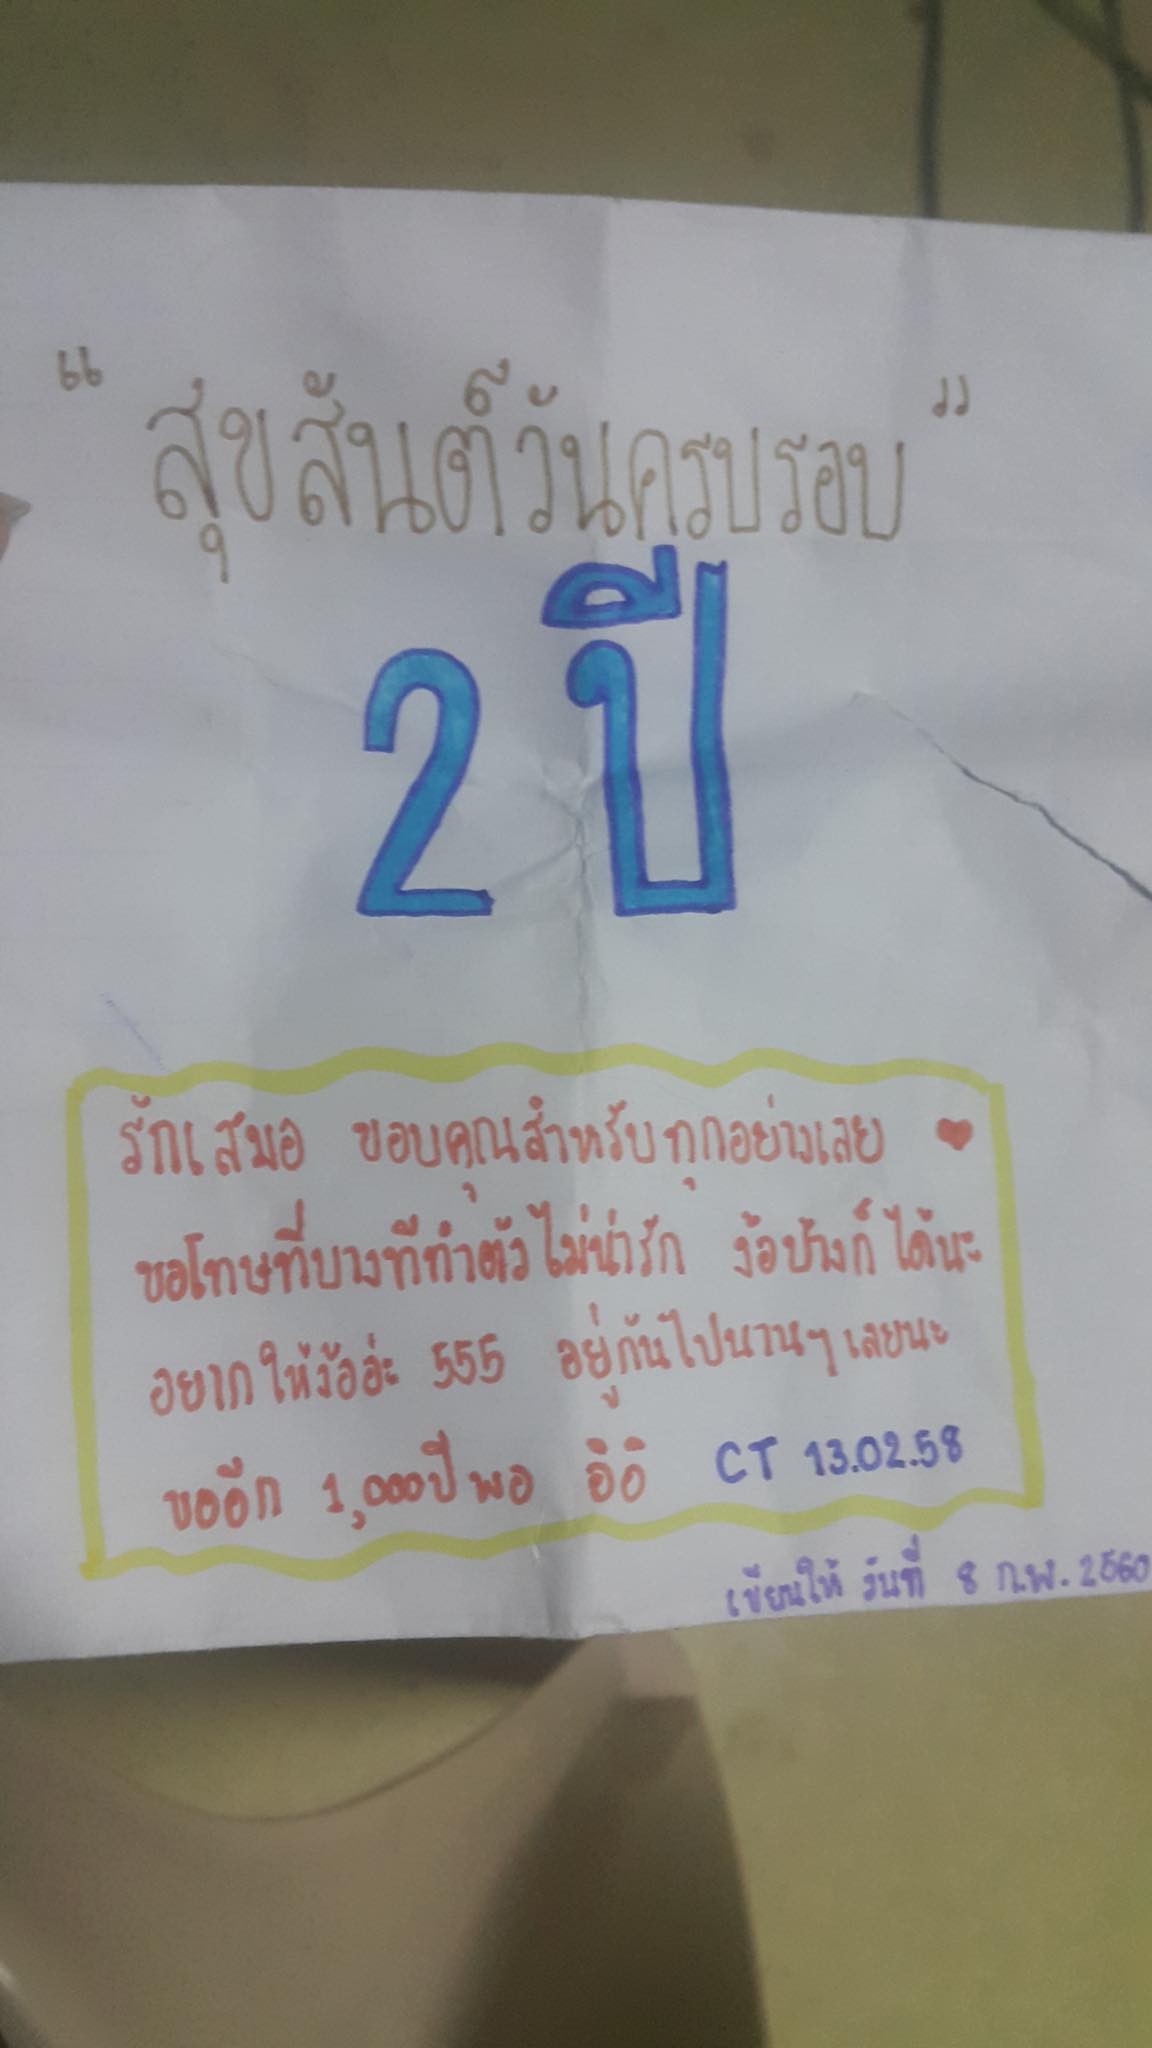 "สุขสันต์วันครบรอบ"
2 ปี
รักเสมอ ขอบคุณสำหรับทุกอย่างเลย ♥
ขอโทษที่บางทีทำตัวไม่น่ารัก ง้อบ้างก็ได้นะ
อยากให้ง้ออ่ะ 555 อยู่กันไปนานๆเลยนะ
ขออีก 1,000ปีพอ อิอิ CT 13.02.58
เขียนให้ วันที่ 8 ก.พ. 2560